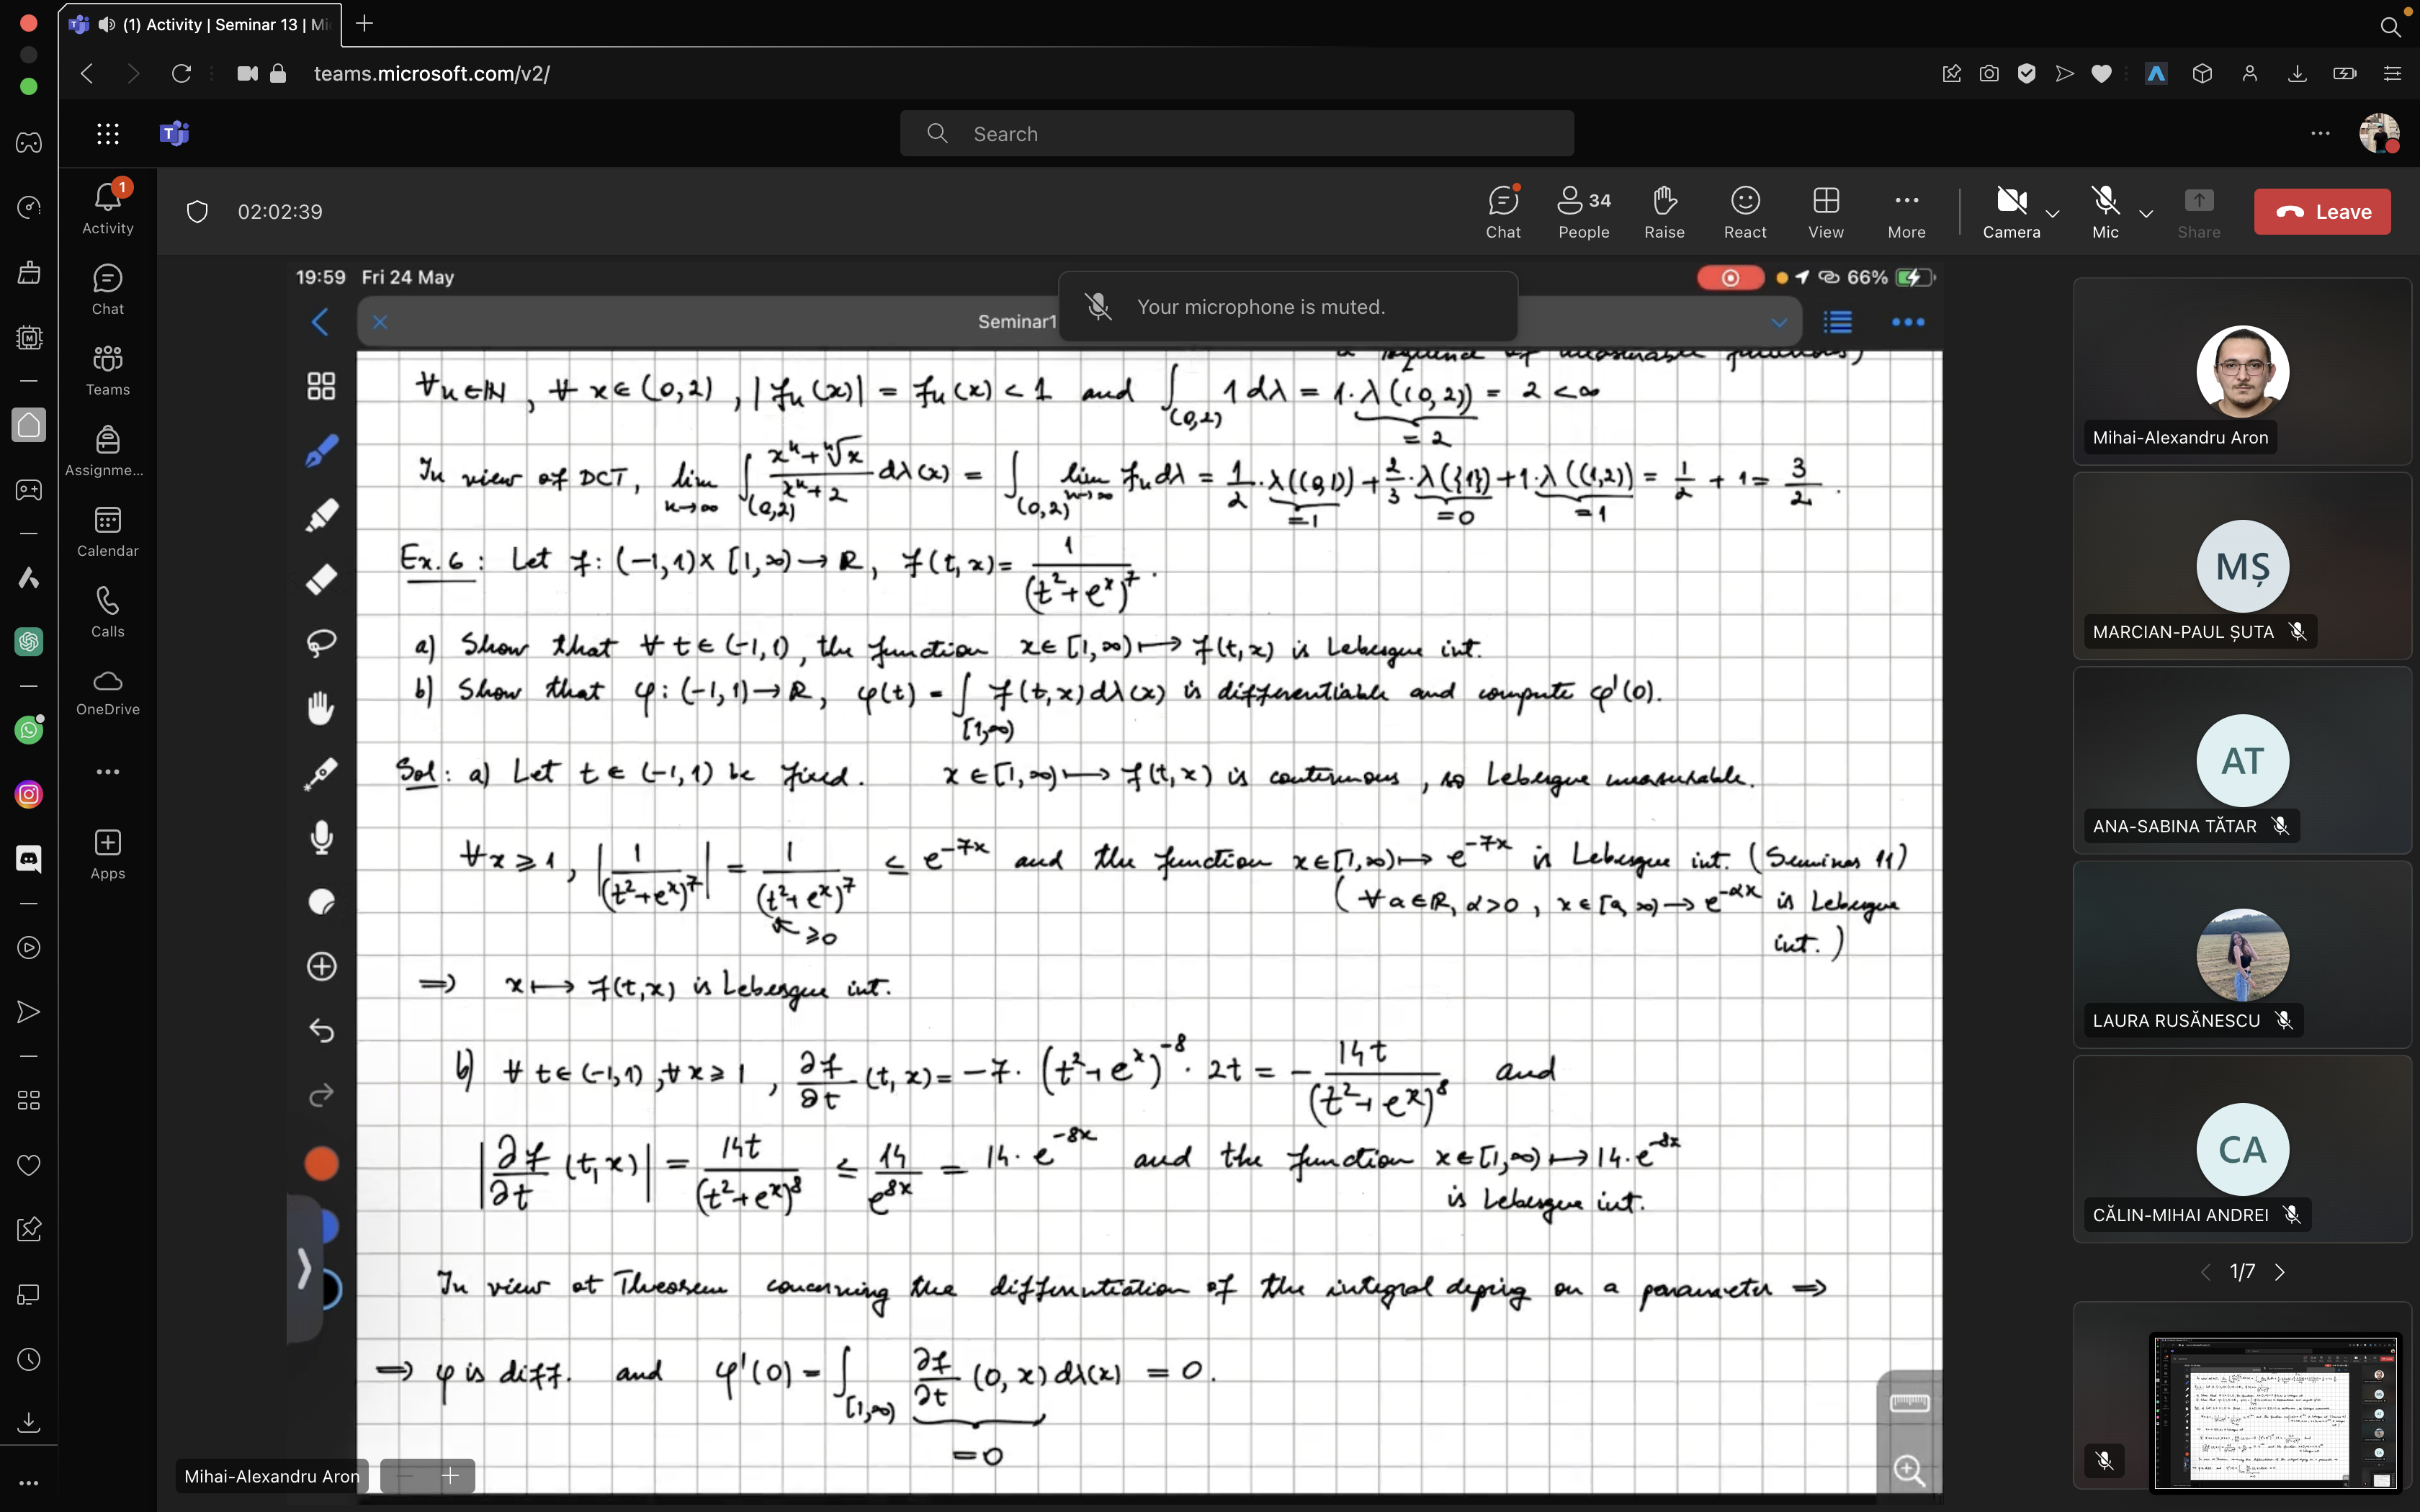 (1) Activity | Seminar 13 | Mi
teams.microsoft.com/v2/
Search
02:02:39
Chat
People
34
Raise
React
View
More
Camera
Mic
Share
Leave
1
Activity
Chat
Teams
Assignme...
Calendar
Calls
OneDrive
Apps
19:59 Fri 24 May
66%
Seminar1
Your microphone is muted.
a sequence of measurable functions)
∀n∈ℕ, ∀ x∈(0,2), |fn(x)| = fn(x) < 1 and ∫_(0,2) 1 dλ = 1·λ((0,2)) = 2 < ∞
= 2
In view of DCT, lim_{n→∞} ∫_(0,2) (x^n + ⁿ√x)/(x^n + 2) dλ(x) = ∫_(0,2) lim_{n→∞} fn dλ = 1/2·λ((0,1)) + 2/3·λ({1}) + 1·λ((1,2)) = 1/2 + 1 = 3/2.
=1 =0 =1
Ex.6: Let f: (-1,1)×[1,∞) → ℝ, f(t,x) = 1/(t²+e^x)^7.
a) Show that ∀ t∈(-1,1), the function x∈[1,∞) ↦ f(t,x) is Lebesgue int.
b) Show that φ: (-1,1) → ℝ, φ(t) = ∫_[1,∞) f(t,x) dλ(x) is differentiable and compute φ'(0).
Sol: a) Let t∈(-1,1) be fixed. x∈[1,∞) ↦ f(t,x) is continuous, so Lebesgue measurable.
∀x ≥ 1, |1/(t²+e^x)^7| = 1/(t²+e^x)^7 ≤ e^{-7x} and the function x∈[1,∞) ↦ e^{-7x} is Lebesgue int. (Seminar 11)
≥0
(∀a∈ℝ, α>0, x∈[a,∞) → e^{-αx} is Lebesgue
int.)
⟹ x ↦ f(t,x) is Lebesgue int.
b) ∀ t∈(-1,1), ∀x ≥ 1, ∂f/∂t (t,x) = -7·(t²+e^x)^{-8}·2t = - 14t/(t²+e^x)^8 and
|∂f/∂t (t,x)| = 14t/(t²+e^x)^8 ≤ 14/e^{8x} = 14·e^{-8x} and the function x∈[1,∞) ↦ 14·e^{-8x}
is Lebesgue int.
In view of Theorem concerning the differentiation of the integral deping on a parameter ⟹
⟹ φ is diff. and φ'(0) = ∫_[1,∞) ∂f/∂t (0,x) dλ(x) = 0.
= 0
Mihai-Alexandru Aron
Mihai-Alexandru Aron
MȘ
MARCIAN-PAUL ȘUTA
AT
ANA-SABINA TĂTAR
LAURA RUSĂNESCU
CA
CĂLIN-MIHAI ANDREI
1/7